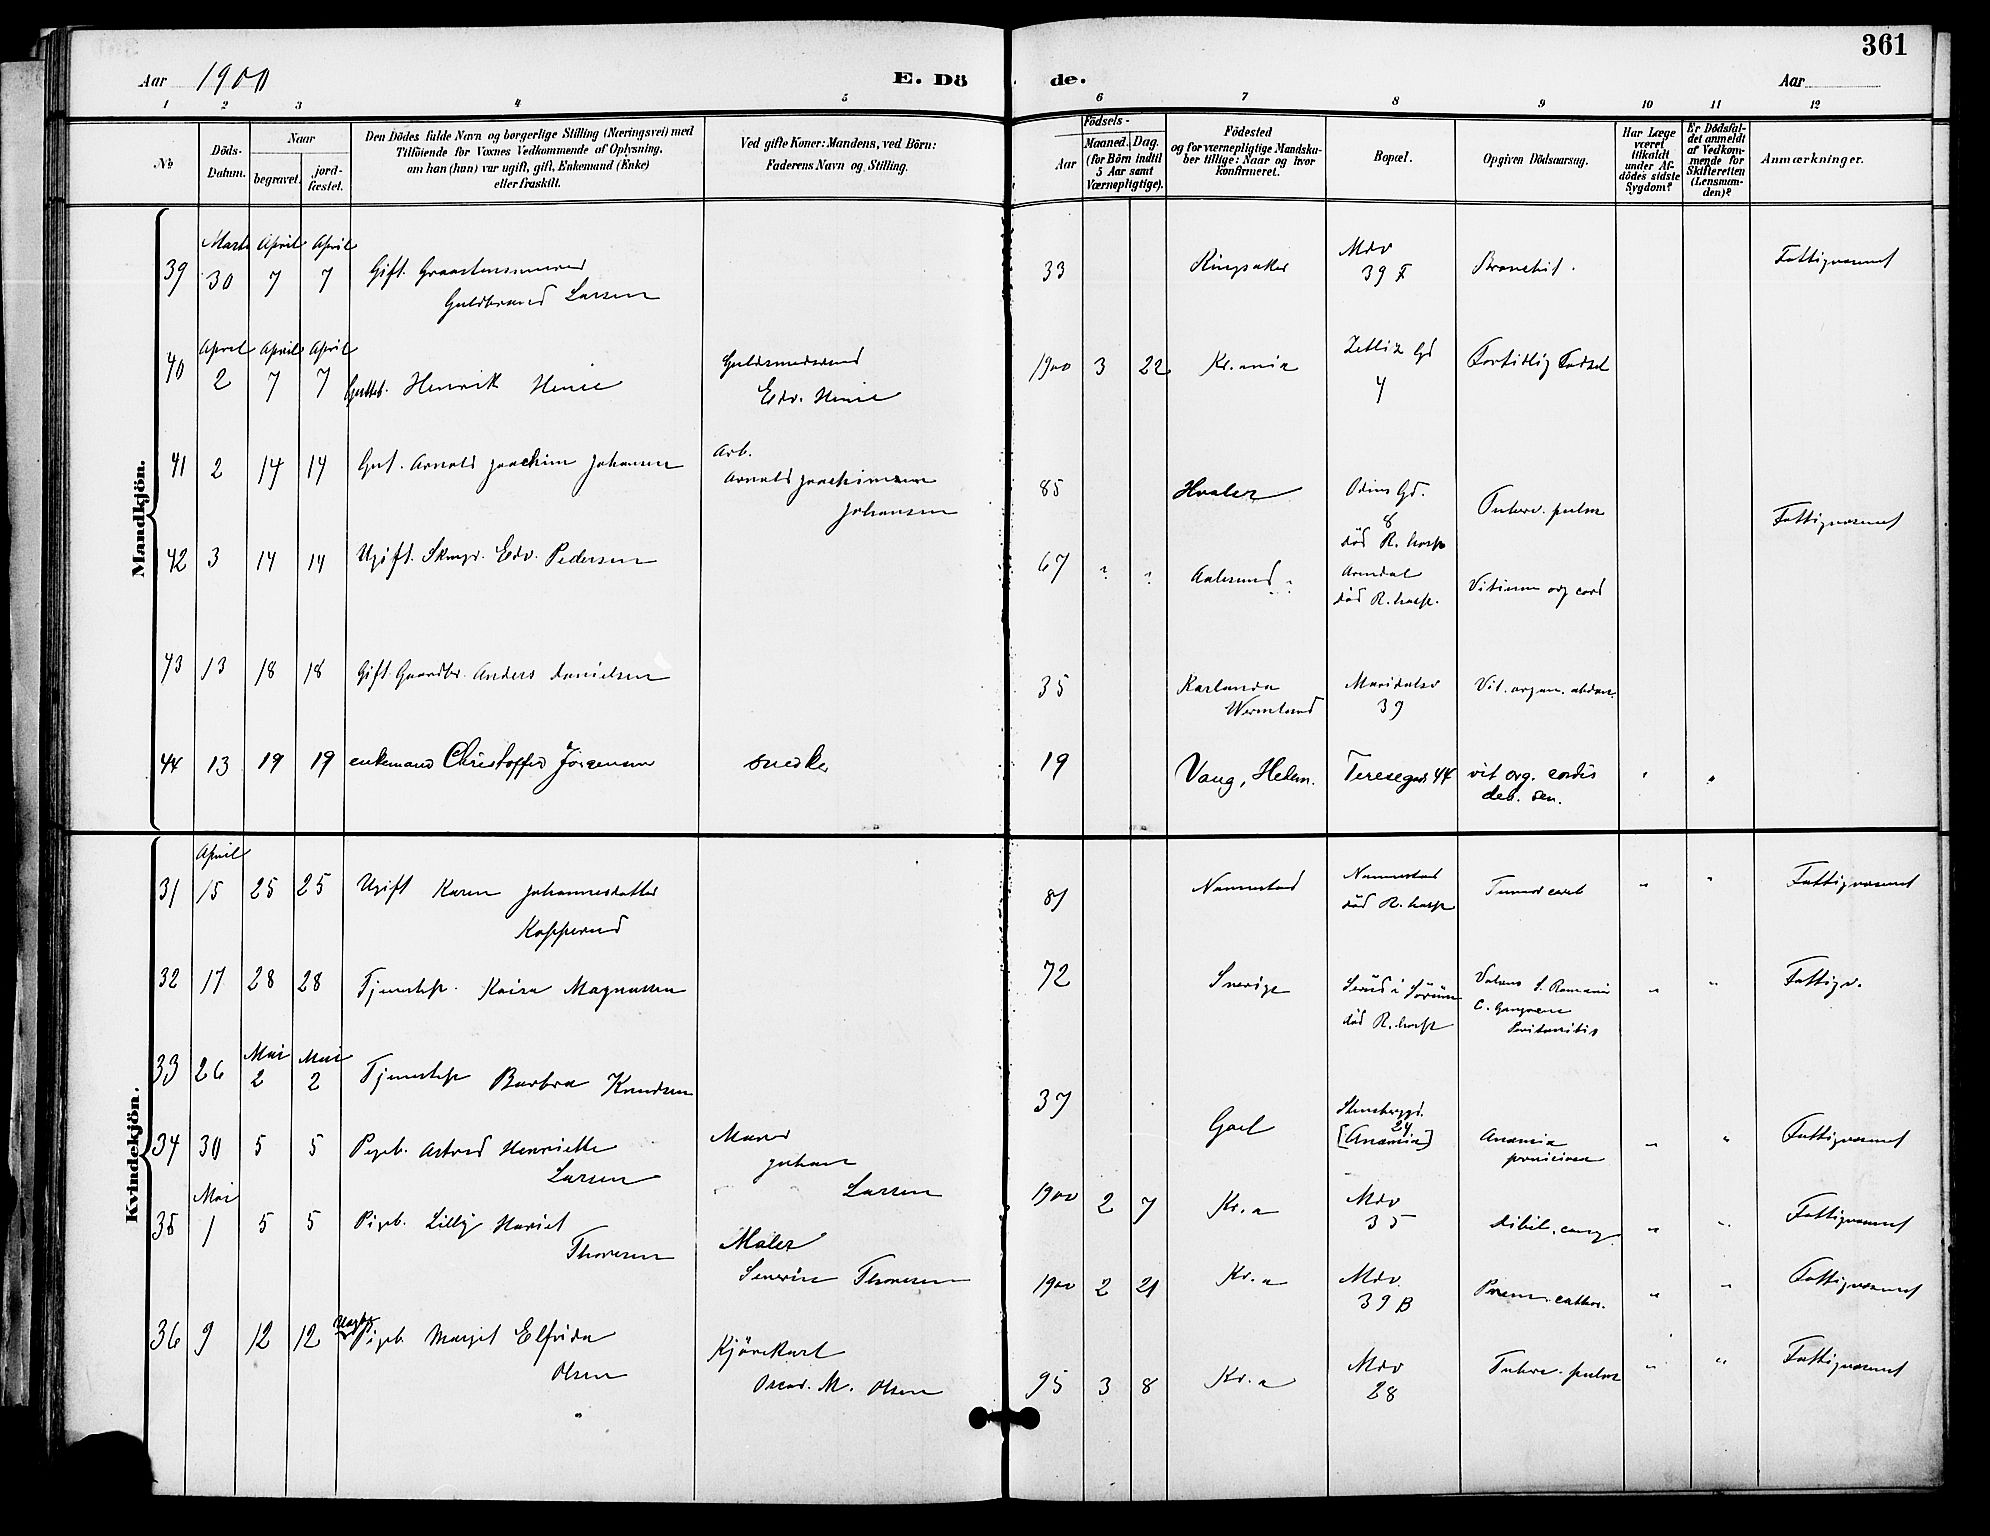 361
Aar 1900
E. Dö de.
Aar
1 2 3 4 5 6 7 8 9 10 11 12
No
Döds-Datum.
Naar
begravet.
jord-fæstet.
Den Dödes fulde Navn og borgerlige Stilling (Næringsvei) med
Tilföiende for Voxnes Vedkommende af Oplysning,
om han (hun) var ugift, gift, Enkemand (Enke)
eller fraskilt.
Ved gifte Koner: Mandens, ved Börn:
Faderens Navn og Stilling.
Födsels-
Aar
Maaned. Dag.
(for Börn indtil
5 Aar samt
Værnepligtige).
Födested
og for værnepligtige Mandska-
ber tillige: Naar og hvor
konfirmeret.
Bopæl.
Opgiven Dödsaarsag.
Har Læge
været
tilkaldt
under Af-
dödes sidste
Sygdom?
Er Dödsfal-
det anmeldt
af Vedkom-
mende for
Skifteretten
(Lensman-
den)?
Anmærkninger.
Mandkjön.
Marts April April
39 30 7 7 Gift
Guldbrand Larsen
33 Ringsaker Mdv
39 F Bronchit. Fattigvæsenet
April April April
40 2 7 7 Henrik Henie
Guldsmedsvend
Edv. Henie
1900 3 22 Kr.ania Gd
4 Fortidlig Fødsel
41 2 14 14 Gut. Arnold Joachim Johansen
Arb.
Arnold Joachimsen
Johansen
85 Hvaler Odins Gd.
8
død R. hosp Tuberc. pulm Fattigvæsenet
42 3 14 14 Ugift. Edv. Pedersen
67 ? ? Aalesund Arendal
død R. hosp. Vitium org cord
43 13 18 18 Gift Gaardbr. Anders Danielsen
35 Karlanda
Wermland Maridalsv
39 Vit. organ.
44 13 19 19 enkemand Christoffer Jørgensen snedker
19 Vang, Hedem. Teresegad 44 vit org. cordis
deb. sen.
Kvindekjön.
April
31 15 25 25 Ugift Karen Johannesdatter
Kopperud
81 Nannestad Nannestad
død R. hosp Tumor „ „ Fattigvæsenet
32 17 28 28 Tjenestep. Kaisa Magnussen
72 Sverige
død R. hosp S. Romani
C. Gangræne
Peritonitis „ „ Fattigv.
Mai Mai
33 26 2 2 Tjenestep Barbra Knudsen
37 Goel Stensberggd.
24
[Anæmia] Anæmia
perniciosa „ „ Fattigvæsenet
34 30 5 5 Pigeb. Astrid Henriette
Larsen
Murer
Johan
Larsen
1900 2 7 Kr.a Mdv
35 debil. cong. „ „ Fattigvæsenet
Mai
35 1 5 5 Pigeb. Lilly Hariet
Thoresen
Maler
Severin Thoresen
1900 2 21 Kr.a Mdv
39 B Pneum. cathar. „ „ Fattigvæsenet
36 9 12 12 Pigeb. Margit Elfrida
Olsen
Kjørekarl
Oscar. M. Olsen
95 3 8 Kr.a Mdv
28 Tuberc. pulm „ „ Fattigvæsenet